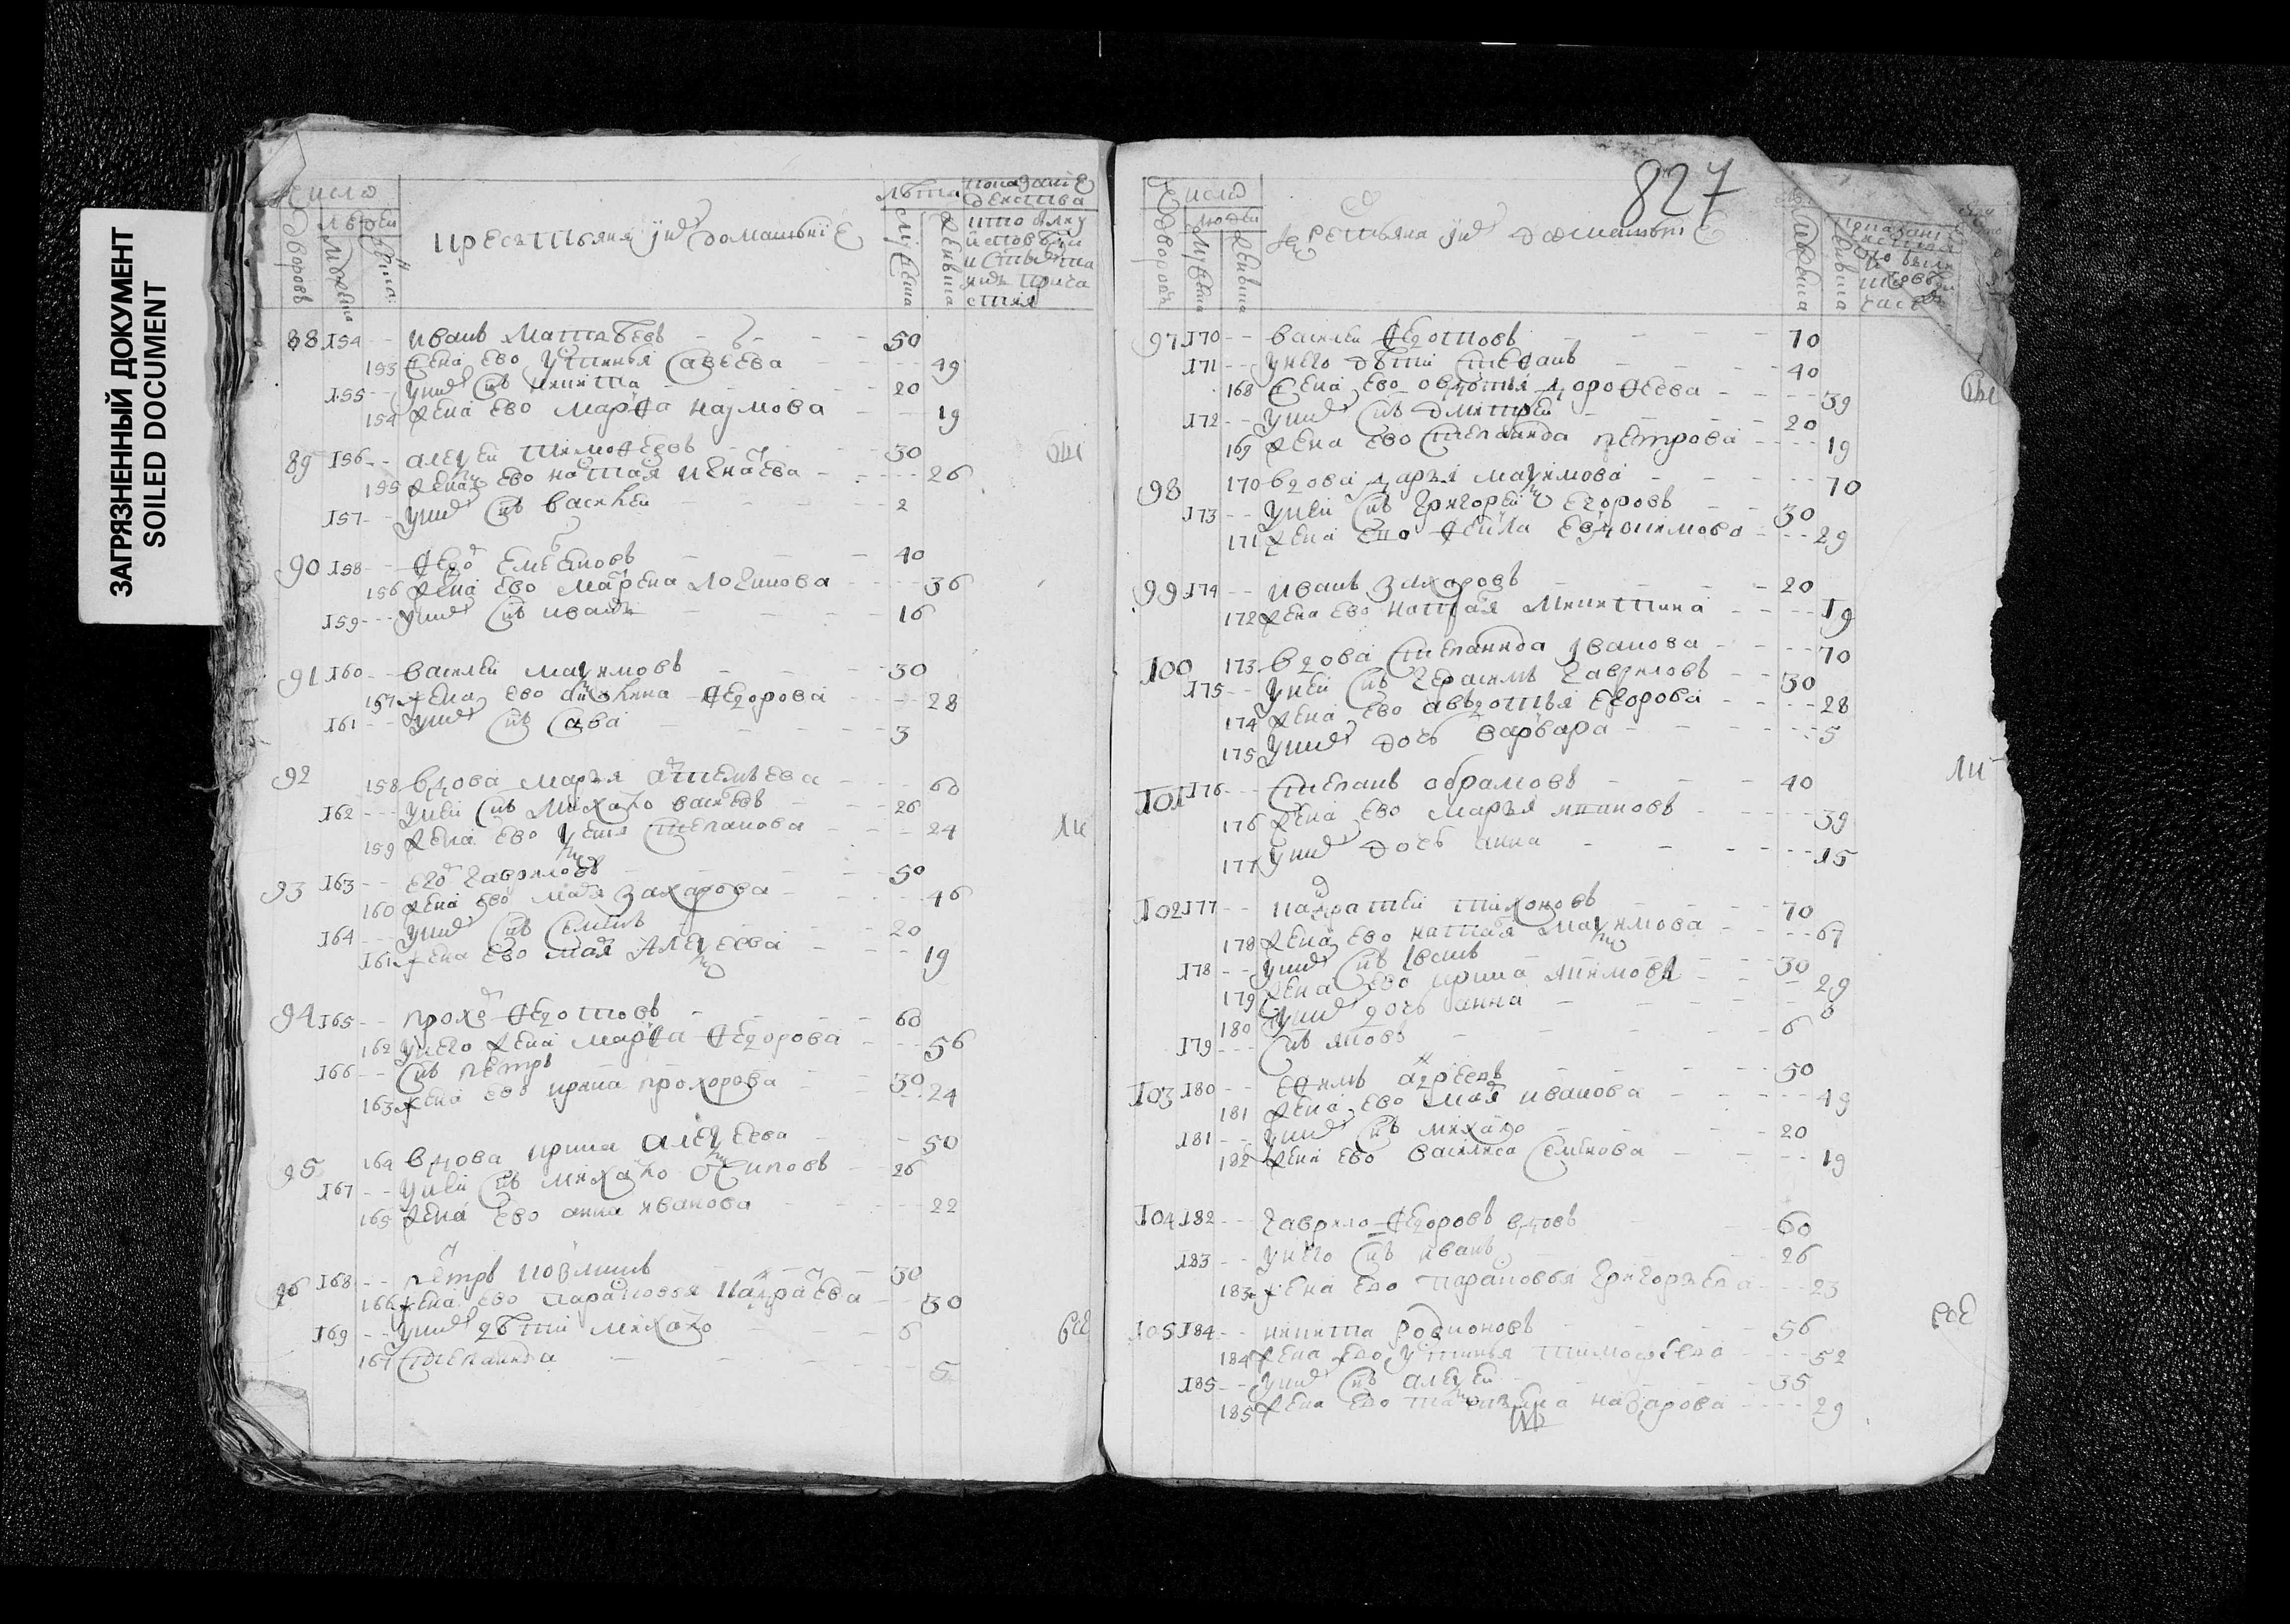 ЗАГРЯЗНЕННЫЙ ДОКУМЕНТ
SOILED DOCUMENT
число
дворовъ
людеи
крестьяня их домашние
лѣта
показание
действа
кто былъ
у исповѣди
88 154 -- иванъ матвѣевъ 50
153 жена ево устинья савеева 49
155 -- у них снъ никита 20
154 жена ево марфа наумова 19
89 156 -- алеѯеи тимофеевъ 30
155 жена ево наталя 26
157 -- у них снъ васи леи 2
90 158 -- федо 40
156 жена ево марена логинова 36
159 -- у них снъ иванъ 16
91 160 -- василеи маѯимовъ 30
157 жена ево акилина федорова 28
161 -- у них снъ сава 3
92 158 вдова марья артемъева 60
162 -- у неи снъ михаило василевъ 26
159 жена ево ѯения степанова 24
93 163 -- его гавриловъ 50
160 жена ево маря захарова 46
164 -- у них снъ семенъ 20
161 жена ево маря алеѯеева 19
94 165 -- прохо федотовъ 60
162 у него жена марфа федорова 56
166 -- снъ петръ 30
163 жена ево ирина прохорова 24
95 164 вдова ирина алеѯеева 50
167 -- у неи снъ михаило осиповъ 26
165 жена ево анна иванова 22
96 168 -- петръ 30
166 жена ево парасковья 30
169 -- у них дѣти михаило 6
167 степанида 5
827
число
дворовъ
людеи
крестьяня их домашние
97 170 -- василеи федотовъ 70
171 -- у него дѣти степанъ 40
168 жена ево овдотья дорофеева 39
172 -- у них снъ дмитреи 20
169 жена ево степанида петрова 19
98 170 вдова дарья маѯимова 70
173 -- у неи снъ григореи егоровъ 30
171 жена ево фекла 29
99 174 -- иванъ захаровъ 20
172 жена ево наталя никитина 19
100 173 вдова степанида иванова 70
175 -- у неи снъ герасимъ гавриловъ 30
174 жена ево авдотья егорова 28
175 у них дочь варвара 5
101 176 -- степанъ обрамовъ 40
176 жена ево марья 39
177 у них дочь анна 15
102 177 -- кадратеи тихоновъ 70
178 жена ево наталя маѯимова 67
178 -- у них снъ иванъ 30
179 жена ево ирина 29
180 у них дочь анна 8
179 -- снъ яковъ 6
103 180 -- ефимъ адреевъ 50
181 жена ево маря иванова 49
181 -- у них снъ михаило 20
182 жена ево василиса семенова 19
104 182 -- гаврило федоровъ вдовъ 60
183 -- у него снъ иванъ 26
183 жена ево парасковья григоръева 23
105 184 -- никита родионовъ 56
184 жена ево устинья тимофѣева 52
185 -- у них снъ алеѯеи 35
185 жена ево назарова 29